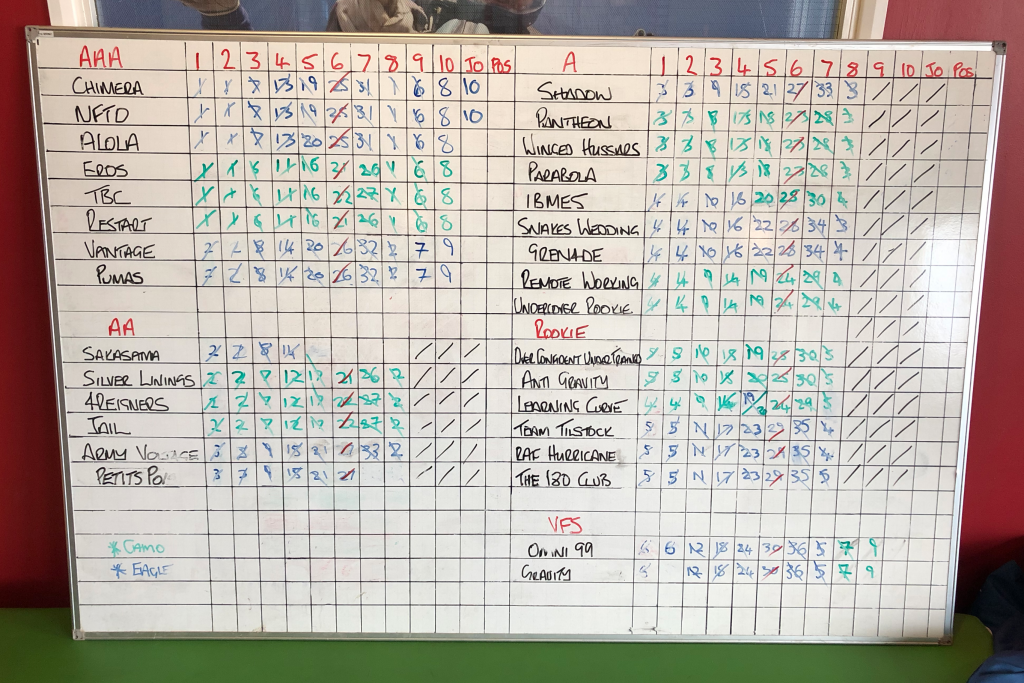 AAA 1 2 3 4 5 6 7 8 9 10 JO POS
CHIMERA X X 8 13 19 25 31 1 6 8 10
NFTO X X 8 13 19 25 31 1 6 8 10
ALOLA X X 8 13 20 25 31 1 6 8
EROS X X 6 11 16 21 26 1 6 8
TBC X X 6 11 16 22 27 1 6 8
RESTART X X 6 11 16 21 26 1 6 8
VANTAGE 2 2 8 14 20 26 32 2 7 9
PUMAS 2 2 8 14 20 26 32 2 7 9
AA
SAKASAMA 2 2 8 14 / / /
SILVER LININGS 2 2 7 12 17 21 26 2 / / /
4REISNERS 2 2 7 12 17 22 27 2 / / /
JAIL 2 2 7 12 17 22 27 2 / / /
ARMY 3 3 9 15 21 27 33 2 / / /
PETITS 3 3 9 15 21 27 / / /
*CAMO
*EAGLE
A 1 2 3 4 5 6 7 8 9 10 JO POS
SHADOW 3 3 9 15 21 27 33 3 / / /
PANTHEON 3 3 8 13 18 23 28 3 / / /
WINGED HUSSARS 3 3 8 13 18 23 28 3 / / /
PARABOLA 3 3 8 13 18 23 28 3 / / /
IBMES 4 4 10 16 20 25 30 4 / / /
SNAKES WEDDING 4 4 10 16 22 28 34 3 / / /
GRENADE 4 4 10 16 22 28 34 4 / / /
REMOTE WORKING 4 4 9 14 19 24 29 4 / / /
UNDERCOVER ROOKIE 4 4 9 14 19 24 29 4 / / /
ROOKIE / / /
OVER CONFIDENT UNDER TRAINED 5 5 10 15 19 25 30 5 / / /
ANTI GRAVITY 5 5 10 15 20 25 30 5 / / /
LEARNING CURVE 4 4 9 14 24 29 5 / / /
TEAM TILSTOCK 5 5 11 17 23 29 35 4 / / /
RAF HURRICANE 5 5 11 17 23 29 35 4 / / /
THE 180 CLUB 5 5 11 17 23 29 35 5 / / /
VFS
OMNI 99 6 6 12 18 24 30 36 5 7 9
GRAVITY 6 12 18 24 30 36 5 7 9